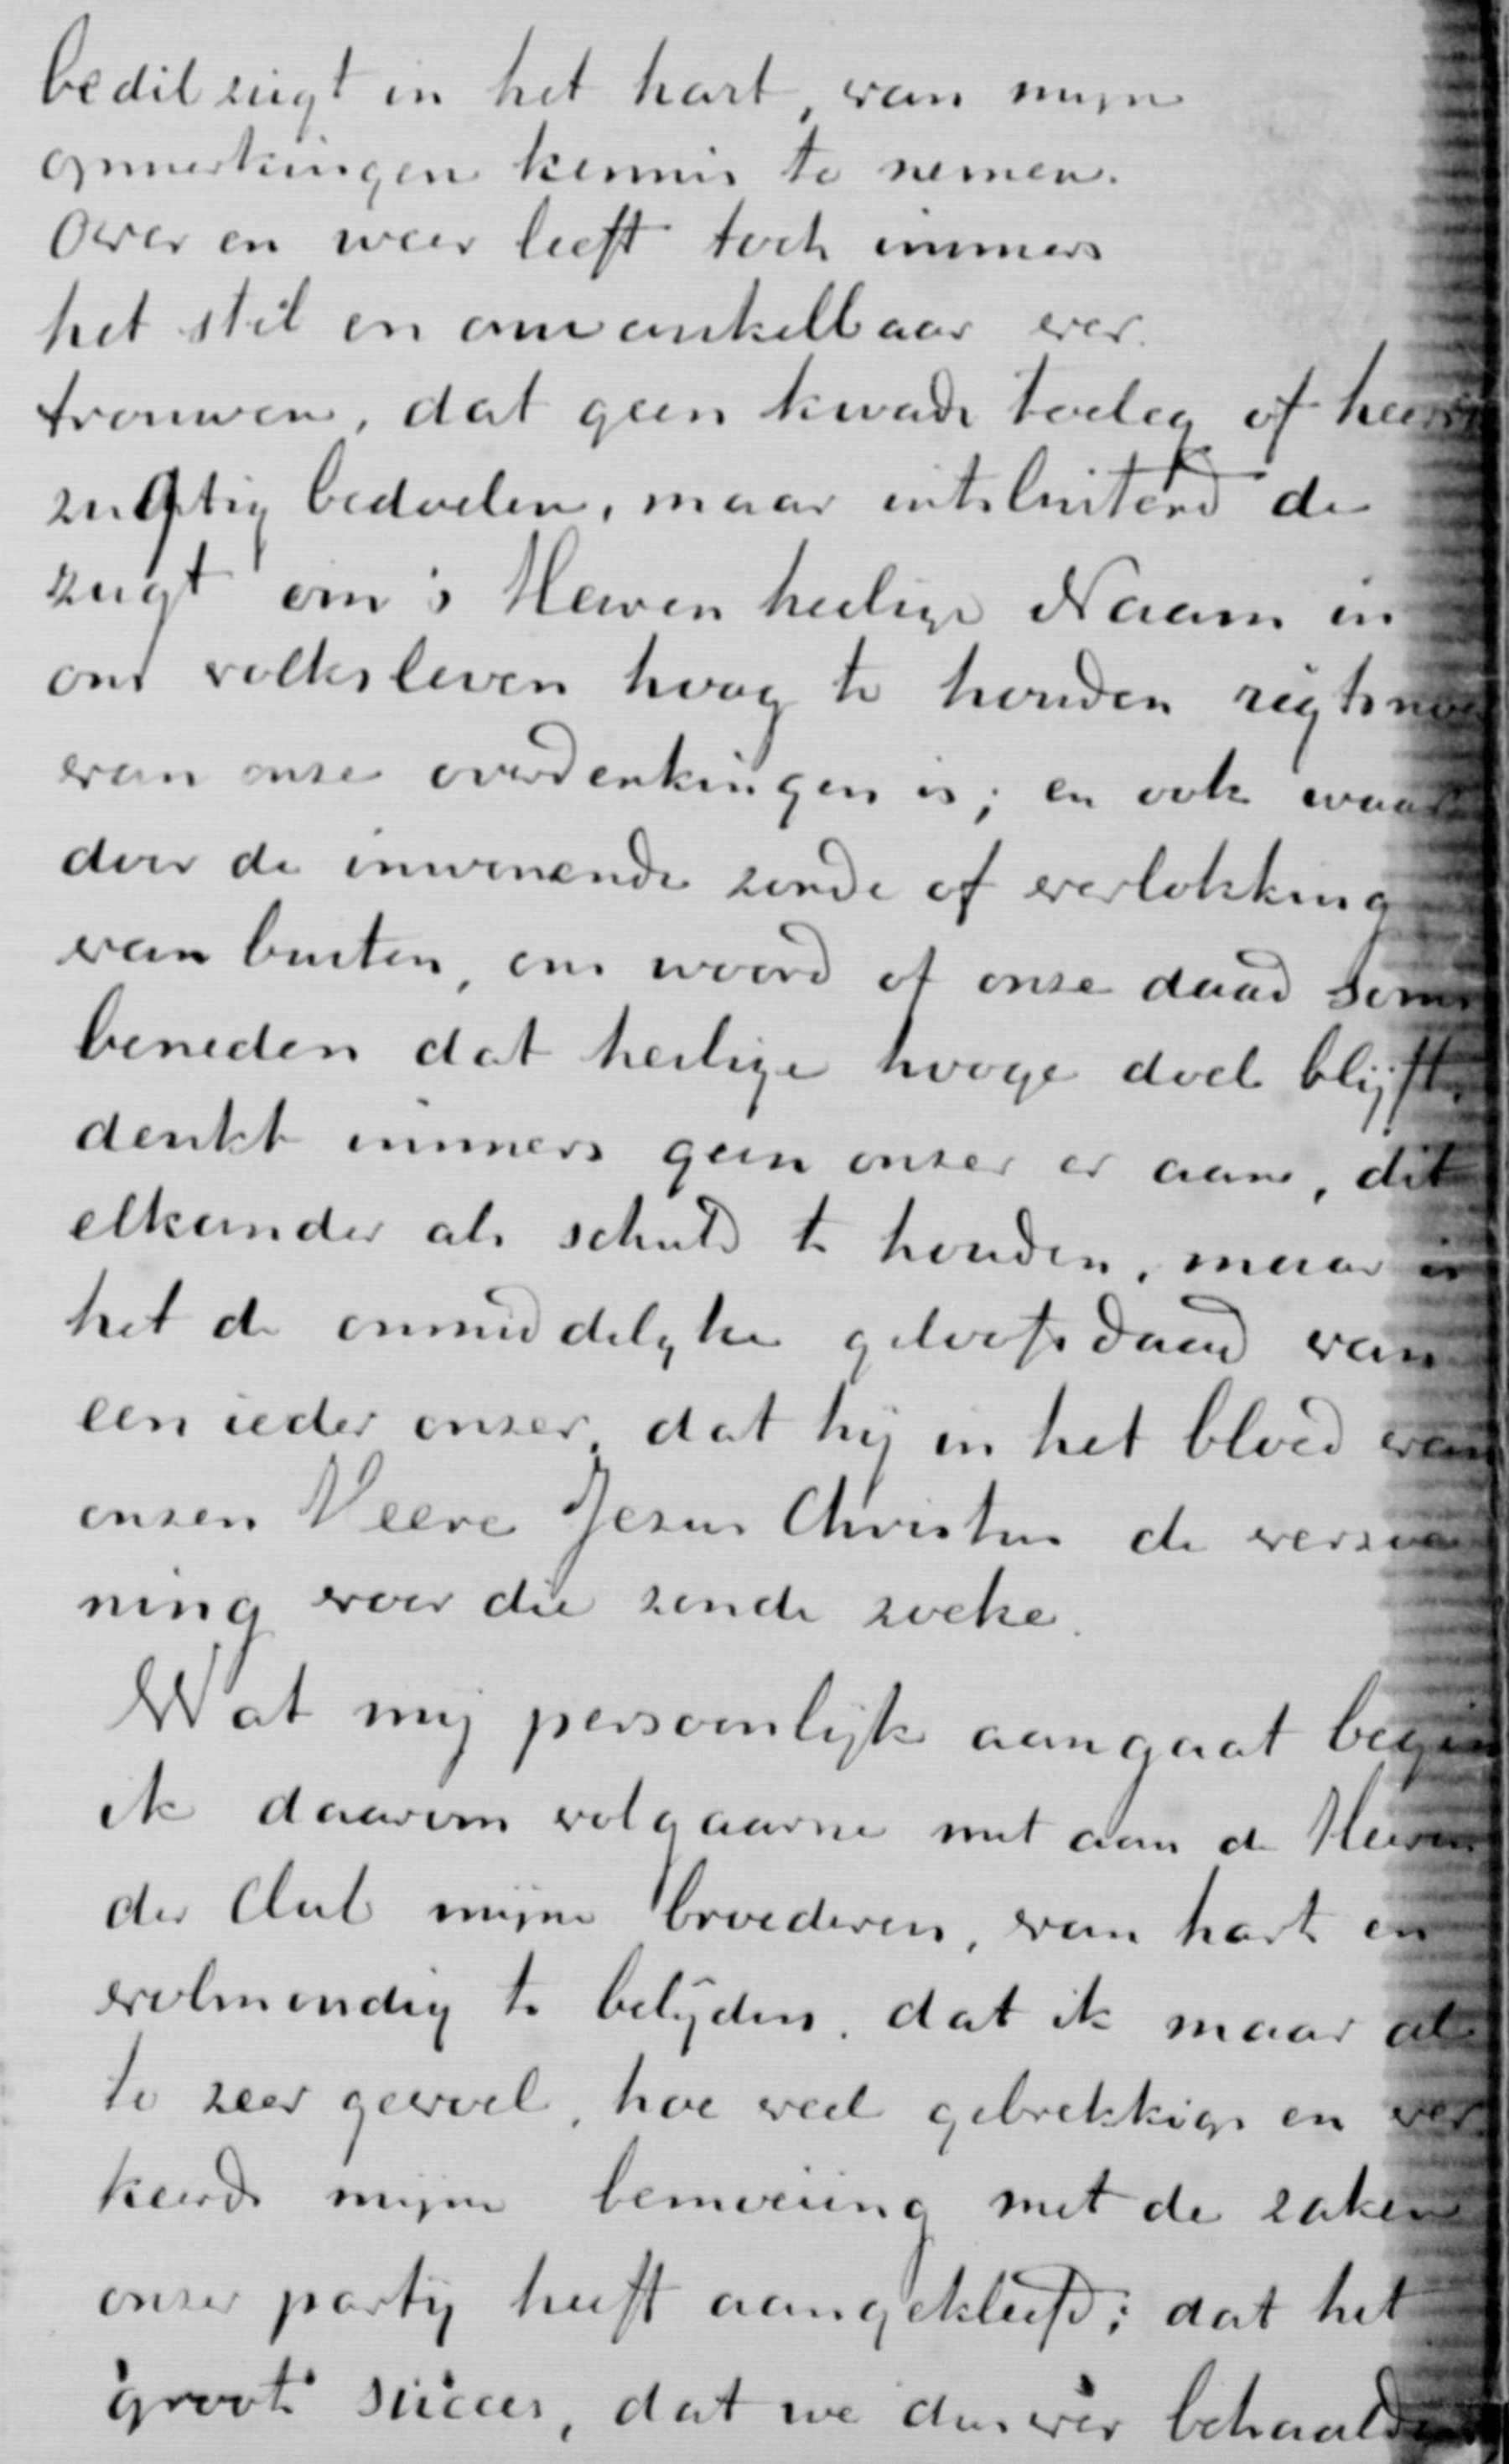 bedilzugt in het hart, van mijne
opmerkingen kennis te nemen.
Over en weer leeft toch immers
het stil en onwankelbaar ver.
trouwen, dat geen kwade toeleg of heersch
zugtig bedoelen, maar uitsluitend de
zugt om 's Heeren heilige Naam in
ons volksleven hoog te houden rigtsnoer
van onze overdenkingen is; en ook waar
door de inwonende zonde of verlokking
van buiten, ons woord of onze daad soms
beneden dat heilige hooge doel blijft,
denkt immers geen onzer er aan, dit
elkander als schuld te houden, maar is
het de onmiddelyke geloofsdaad van
een ieder onzer, dat hij in het bloed van
onzen Heere Jezus Christus de verzoe
ning voor die zonde zoeke.
Wat mij persoonlijk aangaat begin
ik daarom volgaarne met aan de Heeren
der Club mijne broederen, van hart en
volmondig te belijden, dat ik maar al
te zeer gevoel, hoe veel gebrekkigs en ver
keerds mijne bemoeiing met de zaken
onzer partij heeft aangekleefd; dat het
groote succes, dat we dusver behaalden